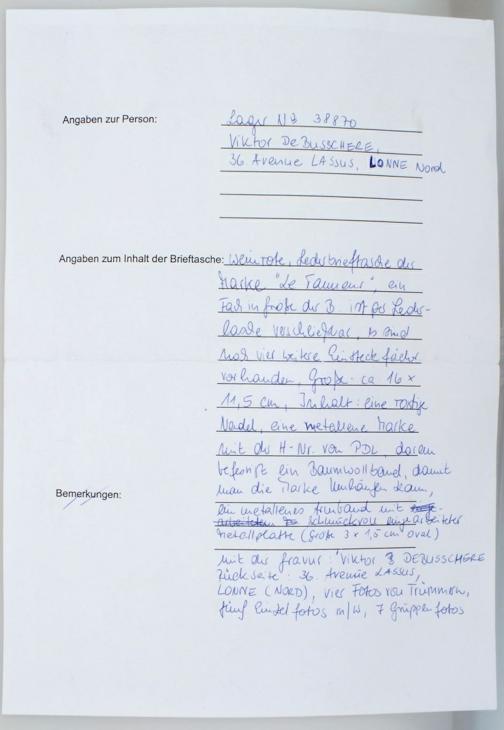 Angaben zur Person:
Lager NB 38870
Viktor DeBUSSCHERE,
36 Avenue LASSUS, LONNE Nord
Angaben zum Inhalt der Brieftasche: Weinrote, Lederbrieftasche der
Marke "Le Tanneur", ein
Fach in Größe der B. ist per Leder-
lasche verschließbar, es sind
noch vier weitere Einsteckfächer
vorhanden, Größe ca 16 x
11,5 cm, Inhalt: eine rostige
Nadel, eine metallene Marke
mit der H-Nr. von PDL, daran
befestigt ein Baumwollband, damit
man die Marke umhängen kann,
Bemerkungen:
ein metallenes Armband mit
schmuckvoll eingearbeiteter
Metallplatte (Größe 3 x 1,5 cm oval)
mit der Gravur: "Viktor DEBUSSCHERE
Rückseite: 36. Avenue LASSUS,
LONNE (NORD), vier Fotos von Trümmern,
fünf Einzelfotos m/w, 7 Gruppenfotos